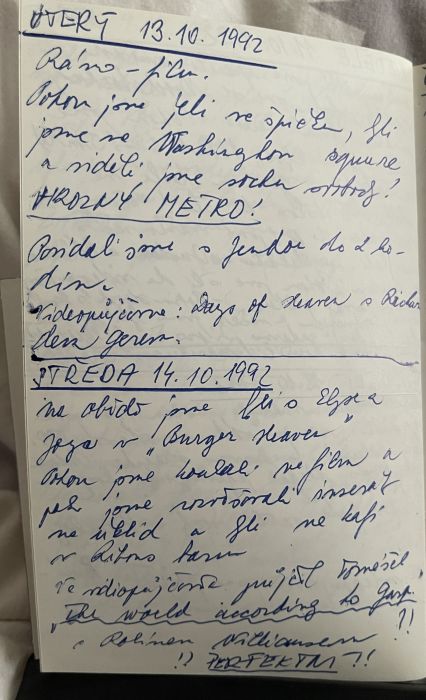 ÚTERÝ 13.10.1992
Ráno - film.
Potom jsme jeli ve špičce, šli
jsme ve Washington square
a viděli jsme sochu svobody!
HROZNÝ METRO!
Povídali jsme s Jendou do 2 ho-
din.
Videopůjčovna: Days of Heaven s Richar
dem Gerem.
STŘEDA 14.10.1992
na obědě jsme šli s
v "Burger Heaven"
Potom jsme koukali na film a
pak jsme roznášeli inzeráty
na úklid a šli na kafi
v
Ve videopůjčovně půjčil Tomášek
"The world according to Garp."
s Robinem Williamsem !!
!! PERFEKTNÍ !!